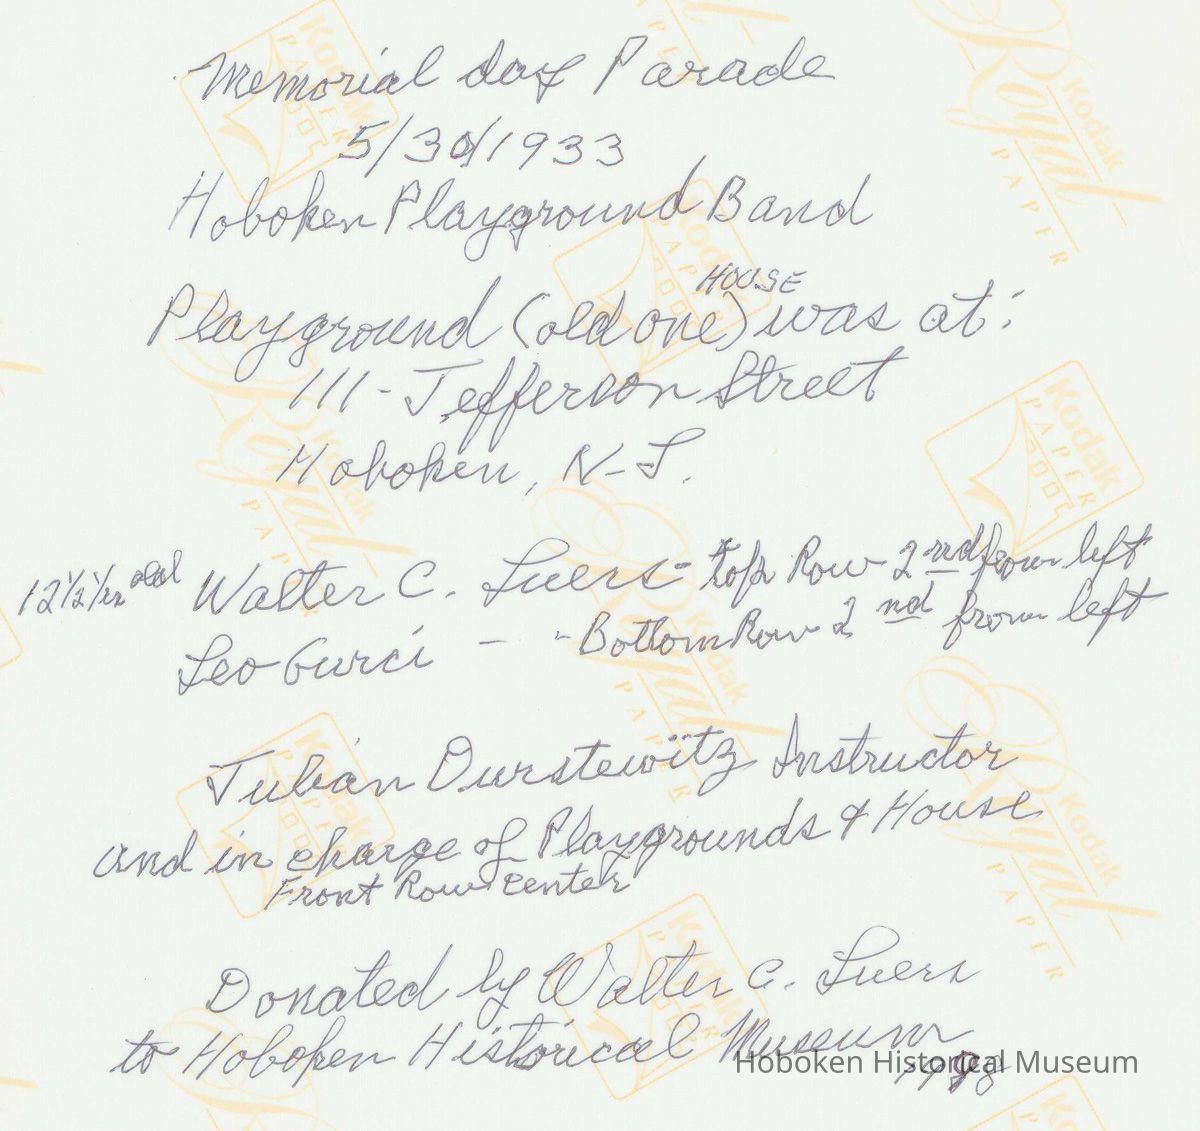 Memorial day Parade
5/30/1933
Hoboken Playground Band
HOUSE
Playground (old one) was at:
111-Jefferson Street
Hoboken, N-J.
12 1/2 yrs old Walter C. Luers - top Row 2nd from left
Leo Gurci - - Bottom Row 2nd from left
Julian Durstewitz Instructor
and in charge of Playgrounds & House
Front Row center
Donated by Walter C. Luers
to Hoboken Historical Museum
1998
Hoboken Historical Museum
Kodak
PAPER
Royal
PAPER